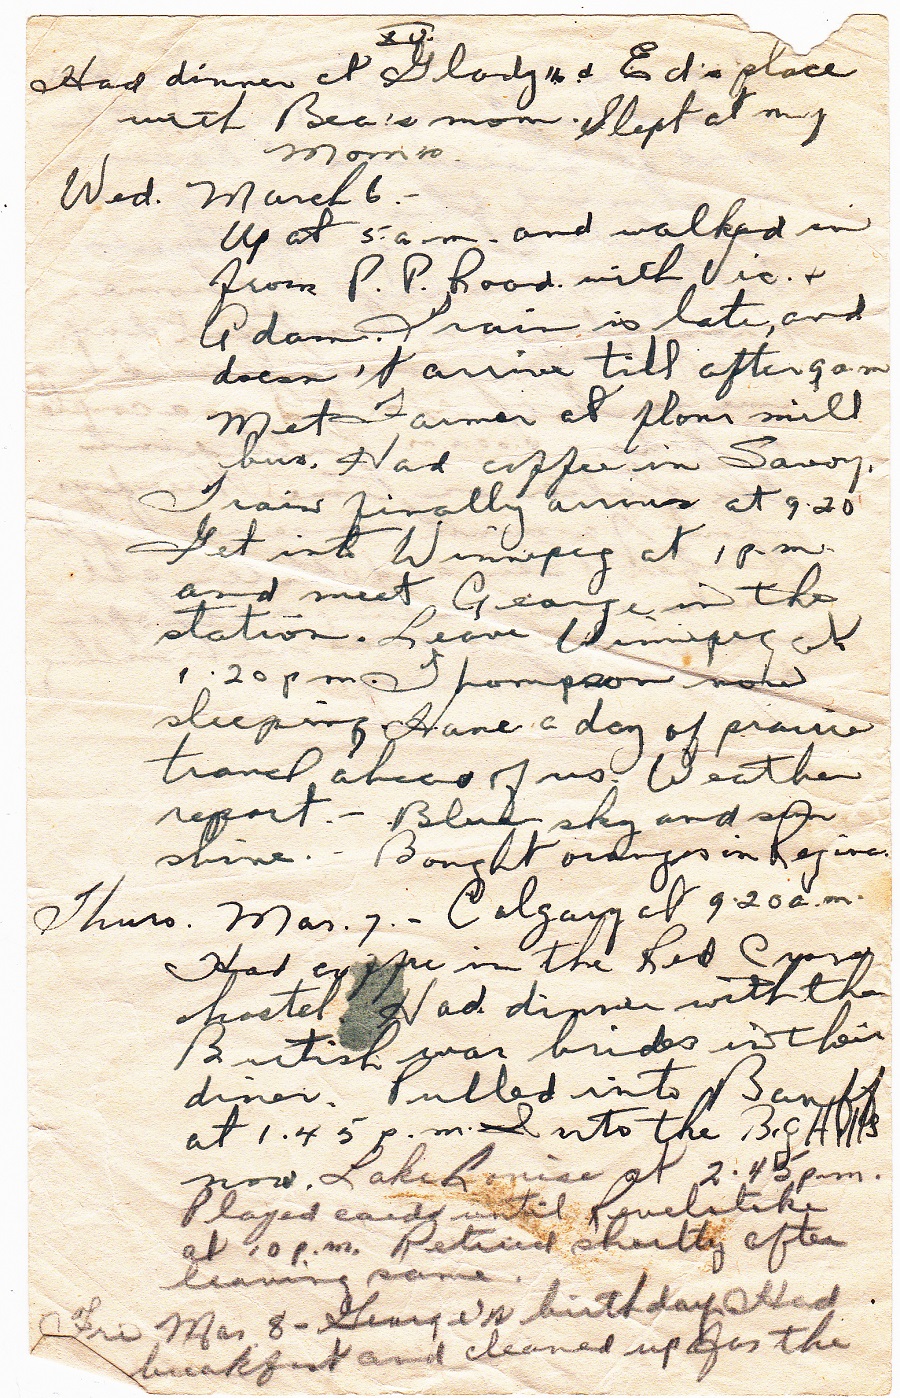 XV.
Had dinner at Gladys & Ed's place
with Bea's mom. Slept at my
Mom's.
Wed. March 6.-
Up at 5 a.m. and walked in
from P.P. Road. with Vic. +
Adam. Train is late, and
doesn't arrive till after 9 a.m
Met Farmer at flour mill
bus. Had coffee in Savoy.
Train finally arrives at 9.20
Get into Winnipeg at 1 p.m.
and meet George in the
station. Leave Winnipeg at
1.20 p.m. Thompson now
sleeping. Have a day of prairie
travel ahead of us. Weather
report. - Blue sky and sun
shine. - Bought oranges in Regina.
Thurs. Mar. 7. - Calgary at 9.20 a.m.
Had coffee in the Red Cross
hostel. Had dinner with the
British war brides in their
diner. Pulled into Banff
at 1.45 p.m. Into the Big Hills
now. Lake Louise at 2.45 p.m.
Played cards until Revelstoke
at 10 p.m. Retired shortly after
leaving same.
Fri Mar. 8 - George's birthday. Had
breakfast and cleaned up for the